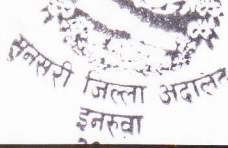 सुनसरी जिल्ला अदालत
इनरुवा